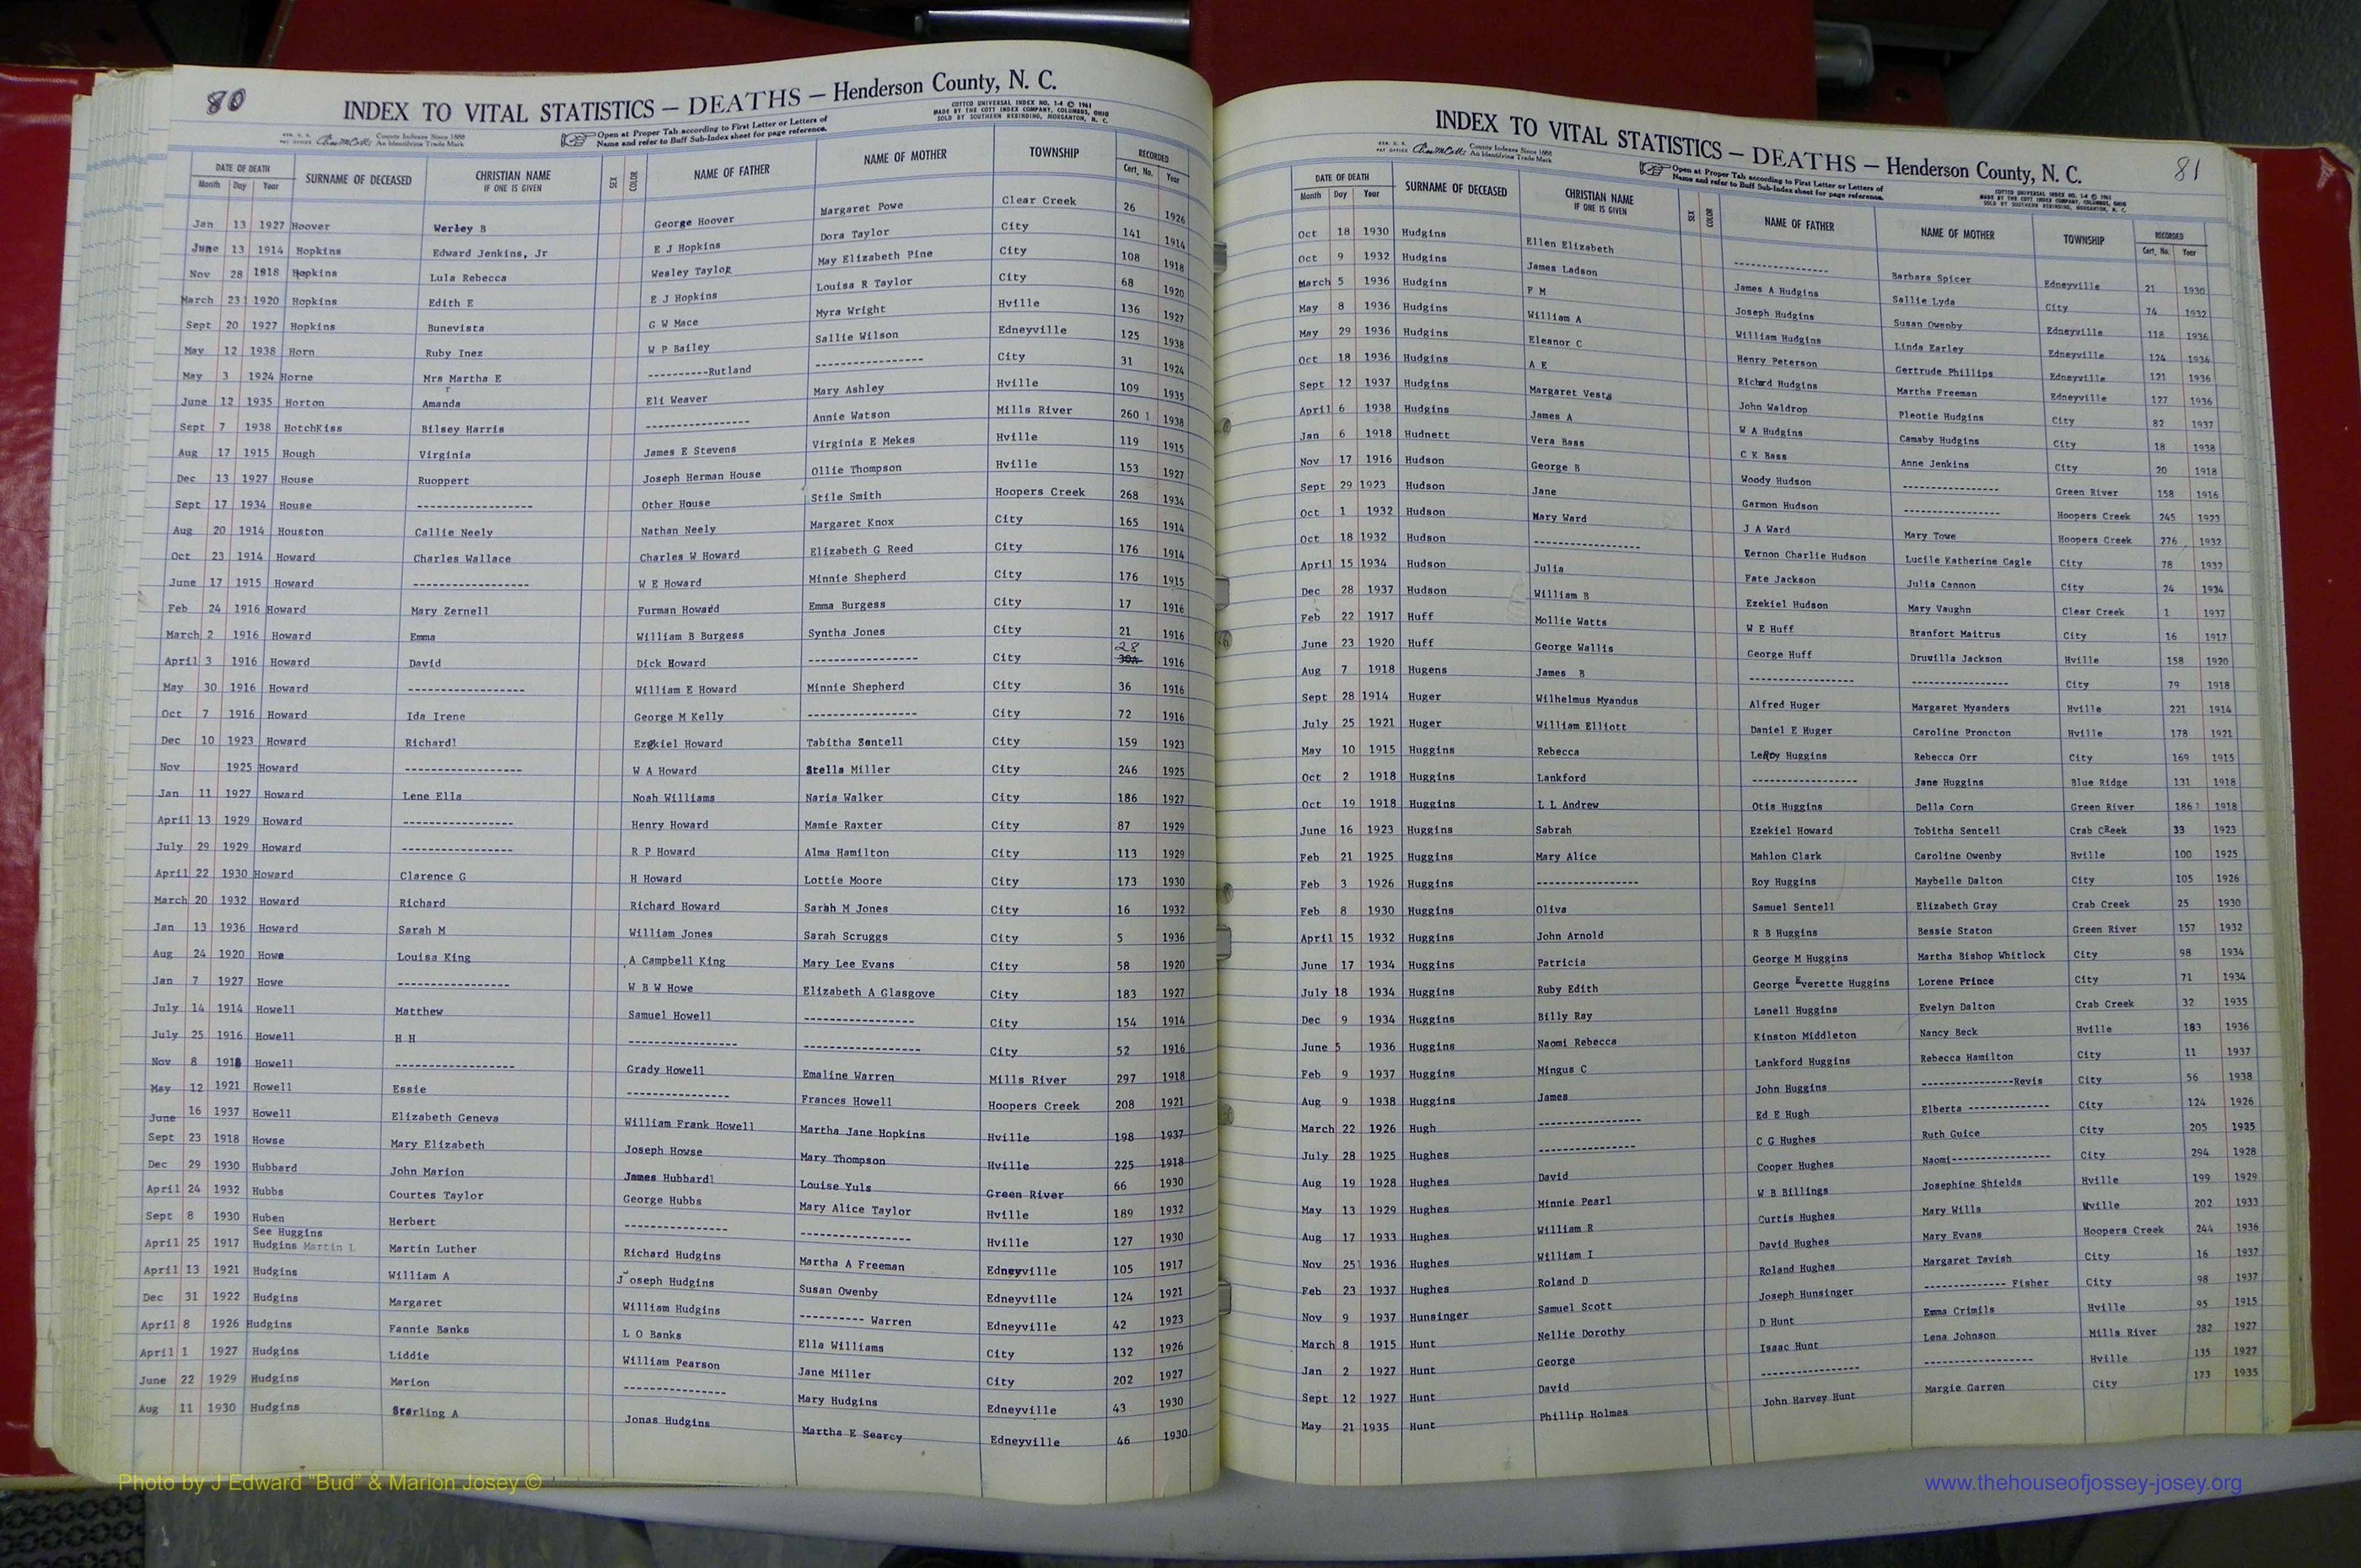 80
INDEX TO VITAL STATISTICS — DEATHS — Henderson County, N. C.
COTTCO UNIVERSAL INDEX NO. 1-4 © 1961
MADE BY THE COTT INDEX COMPANY, COLUMBUS, OHIO
SOLD BY SOUTHERN REBINDING, MORGANTON, N. C.
County Indexes Since 1888
An Identifying Trade Mark
Open at Proper Tab according to First Letter or Letters of
Name and refer to Buff Sub-Index sheet for page reference.
DATE OF DEATH SURNAME OF DECEASED CHRISTIAN NAME SEX COLOR NAME OF FATHER NAME OF MOTHER TOWNSHIP RECORDED
Month Day Year IF ONE IS GIVEN Cert. No. Year
Jan 13 1927 Hoover Werley B George Hoover Margaret Powe Clear Creek 26 1926
June 13 1914 Hopkins Edward Jenkins, Jr E J Hopkins Dora Taylor City 141 1914
Nov 28 1918 Hopkins Lula Rebecca Wesley Taylor May Elizabeth Pine City 108 1918
March 23 1920 Hopkins Edith E E J Hopkins Louisa R Taylor City 68 1920
Sept 20 1927 Hopkins Bunevista G W Mace Myra Wright Hville 136 1927
May 12 1938 Horn Ruby Inez W P Bailey Sallie Wilson Edneyville 125 1938
May 3 1924 Horne Mrs Martha E ----------Rutland ---------------- City 31 1924
June 12 1935 Horton Amanda Eli Weaver Mary Ashley Hville 109 1935
Sept 7 1938 HotchKiss Bilsey Harris ---------------- Annie Watson Mills River 260 1938
Aug 17 1915 Hough Virginia James E Stevens Virginia E Mekes Hville 119 1915
Dec 13 1927 House Ruoppert Joseph Herman House Ollie Thompson Hville 153 1927
Sept 17 1934 House ---------------- Other House Stile Smith Hoopers Creek 268 1934
Aug 20 1914 Houston Callie Neely Nathan Neely Margaret Knox City 165 1914
Oct 23 1914 Howard Charles Wallace Charles W Howard Elizabeth G Reed City 176 1914
June 17 1915 Howard ---------------- W E Howard Minnie Shepherd City 176 1915
Feb 24 1916 Howard Mary Zernell Furman Howard Emma Burgess City 17 1916
March 2 1916 Howard Emma William B Burgess Syntha Jones City 21 1916
April 3 1916 Howard David Dick Howard ---------------- City 28 30A 1916
May 30 1916 Howard ---------------- William E Howard Minnie Shepherd City 36 1916
Oct 7 1916 Howard Ida Irene George M Kelly ---------------- City 72 1916
Dec 10 1923 Howard Richard Ezekiel Howard Tabitha Sentell City 159 1923
Nov 1925 Howard ---------------- W A Howard Stella Miller City 246 1925
Jan 11 1927 Howard Lene Ella Noah Williams Naria Walker City 186 1927
April 13 1929 Howard ---------------- Henry Howard Mamie Raxter City 87 1929
July 29 1929 Howard ---------------- R P Howard Alma Hamilton City 113 1929
April 22 1930 Howard Clarence G H Howard Lottie Moore City 173 1930
March 20 1932 Howard Richard Richard Howard Sarah M Jones City 16 1932
Jan 13 1936 Howard Sarah M William Jones Sarah Scruggs City 5 1936
Aug 24 1920 Howe Louisa King A Campbell King Mary Lee Evans City 58 1920
Jan 7 1927 Howe ---------------- W B W Howe Elizabeth A Glasgove City 183 1927
July 14 1914 Howell Matthew Samuel Howell ---------------- City 154 1914
July 25 1916 Howell H H ---------------- ---------------- City 52 1916
Nov 8 1918 Howell ---------------- Grady Howell Emaline Warren Mills River 297 1918
May 12 1921 Howell Essie ---------------- Frances Howell Hoopers Creek 208 1921
June 16 1937 Howell Elizabeth Geneva William Frank Howell Martha Jane Hopkins Hville 198 1937
Sept 23 1918 Howse Mary Elizabeth Joseph Howse Mary Thompson Hville 225 1918
Dec 29 1930 Hubbard John Marion James Hubbard Louise Yuls Green River 66 1930
April 24 1932 Hubbs Courtes Taylor George Hubbs Mary Alice Taylor Hville 189 1932
Sept 8 1930 Huben Herbert ---------------- ---------------- Hville 127 1930
See Huggins
April 25 1917 Hudgins Martin L Martin Luther Richard Hudgins Martha A Freeman Edneyville 105 1917
April 13 1921 Hudgins William A Joseph Hudgins Susan Owenby Edneyville 124 1921
Dec 31 1922 Hudgins Margaret William Hudgins ---------- Warren Edneyville 42 1923
April 8 1926 Hudgins Fannie Banks L O Banks Ella Williams City 132 1926
April 1 1927 Hudgins Liddie William Pearson Jane Miller City 202 1927
June 22 1929 Hudgins Marion ---------------- Mary Hudgins Edneyville 43 1930
Aug 11 1930 Hudgins Starling A Jonas Hudgins Martha E Searcy Edneyville 46 1930
81
INDEX TO VITAL STATISTICS — DEATHS — Henderson County, N. C.
COTTCO UNIVERSAL INDEX NO. 1-4 © 1961
MADE BY THE COTT INDEX COMPANY, COLUMBUS, OHIO
SOLD BY SOUTHERN REBINDING, MORGANTON, N. C.
County Indexes Since 1888
An Identifying Trade Mark
Open at Proper Tab according to First Letter or Letters of
Name and refer to Buff Sub-Index sheet for page reference.
DATE OF DEATH SURNAME OF DECEASED CHRISTIAN NAME SEX COLOR NAME OF FATHER NAME OF MOTHER TOWNSHIP RECORDED
Month Day Year IF ONE IS GIVEN Cert. No. Year
Oct 18 1930 Hudgins Ellen Elizabeth ---------------- Barbara Spicer Edneyville 21 1930
Oct 9 1932 Hudgins James Ladson James A Hudgins Sallie Lyda City 74 1932
March 5 1936 Hudgins F M Joseph Hudgins Susan Owenby Edneyville 118 1936
May 8 1936 Hudgins William A William Hudgins Linda Earley Edneyville 124 1936
May 29 1936 Hudgins Eleanor C Henry Peterson Gertrude Phillips Edneyville 121 1936
Oct 18 1936 Hudgins A E Richard Hudgins Martha Freeman Edneyville 127 1936
Sept 12 1937 Hudgins Margaret Vesta John Waldrop Pleotie Hudgins City 82 1937
April 6 1938 Hudgins James A W A Hudgins Camsby Hudgins City 18 1938
Jan 6 1918 Hudnett Vera Bass C K Bass Anne Jenkins City 20 1918
Nov 17 1916 Hudson George B Woody Hudson ---------------- Green River 158 1916
Sept 29 1923 Hudson Jane Garmon Hudson ---------------- Hoopers Creek 245 1923
Oct 1 1932 Hudson Mary Ward J A Ward Mary Towe Hoopers Creek 276 1932
Oct 18 1932 Hudson ---------------- Vernon Charlie Hudson Lucile Katherine Cagle City 78 1932
April 15 1934 Hudson Julia Fate Jackson Julia Cannon City 24 1934
Dec 28 1937 Hudson William B Ezekiel Hudson Mary Vaughn Clear Creek 1 1937
Feb 22 1917 Huff Mollie Watts W E Huff Branfort Maitrus City 16 1917
June 23 1920 Huff George Wallis George Huff Druwilla Jackson Hville 158 1920
Aug 7 1918 Hugens James B ---------------- ---------------- City 79 1918
Sept 28 1914 Huger Wilhelmus Myandus Alfred Huger Margaret Myanders Hville 221 1914
July 25 1921 Huger William Elliott Daniel E Huger Caroline Proncton Hville 178 1921
May 10 1915 Huggins Rebecca LeRoy Huggins Rebecca Orr City 169 1915
Oct 2 1918 Huggins Lankford ---------------- Jane Huggins Blue Ridge 131 1918
Oct 19 1918 Huggins L L Andrew Otis Huggins Della Corn Green River 186 1918
June 16 1923 Huggins Sabrah Ezekiel Howard Tobitha Sentell Crab CReek 33 1923
Feb 21 1925 Huggins Mary Alice Mahlon Clark Caroline Owenby Hville 100 1925
Feb 3 1926 Huggins ---------------- Roy Huggins Maybelle Dalton City 105 1926
Feb 8 1930 Huggins Oliva Samuel Sentell Elizabeth Gray Crab Creek 25 1930
April 15 1932 Huggins John Arnold R B Huggins Bessie Staton Green River 157 1932
June 17 1934 Huggins Patricia George M Huggins Martha Bishop Whitlock City 98 1934
July 18 1934 Huggins Ruby Edith George Everette Huggins Lorene Prince City 71 1934
Dec 9 1934 Huggins Billy Ray Lanell Huggins Evelyn Dalton Crab Creek 32 1935
June 5 1936 Huggins Naomi Rebecca Kinston Middleton Nancy Beck Hville 183 1936
Feb 9 1937 Huggins Mingus C Lankford Huggins Rebecca Hamilton City 11 1937
Aug 9 1938 Huggins James John Huggins ----------------Revis City 56 1938
March 22 1926 Hugh ---------------- Ed E Hugh Elberta -------------- City 124 1926
July 28 1925 Hughes ---------------- C G Hughes Ruth Guice City 205 1925
Aug 19 1928 Hughes David Cooper Hughes Naomi---------------- City 294 1928
May 13 1929 Hughes Minnie Pearl W B Billings Josephine Shields Hville 199 1929
Aug 17 1933 Hughes William R Curtis Hughes Mary Wills Hville 202 1933
Nov 25 1936 Hughes William I David Hughes Mary Evans Hoopers Creek 244 1936
Feb 23 1937 Hughes Roland D Roland Hughes Margaret Tavish City 16 1937
Nov 9 1937 Hunsinger Samuel Scott Joseph Hunsinger -------------- Fisher City 98 1937
March 8 1915 Hunt Nellie Dorothy D Hunt Emma Crimils Hville 95 1915
Jan 2 1927 Hunt George Isaac Hunt Lena Johnson Mills River 282 1927
Sept 12 1927 Hunt David ---------------- ---------------- Hville 135 1927
May 21 1935 Hunt Phillip Holmes John Harvey Hunt Margie Garren City 173 1935
Photo by J Edward "Bud" & Marion Josey ©
www.thehouseofjossey-josey.org